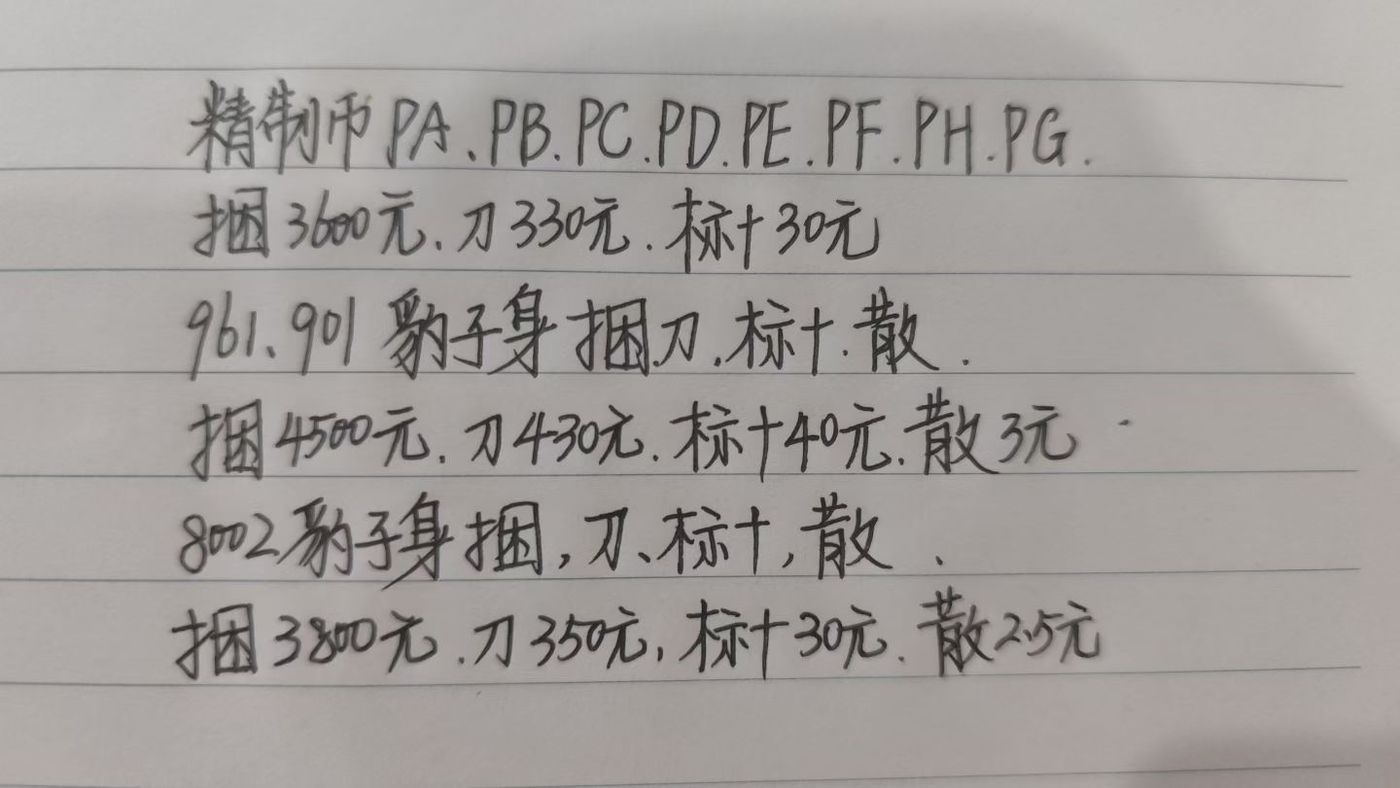 精制币PA.PB.PC.PD.PE.PF.PH.PG.
捆3600元.刀330元.标十30元
961.901豹子身捆刀.标十.散.
捆4500元.刀430元.标十40元.散3元
8002豹子身捆,刀、标十,散.
捆3800元.刀350元,标十30元.散2.5元